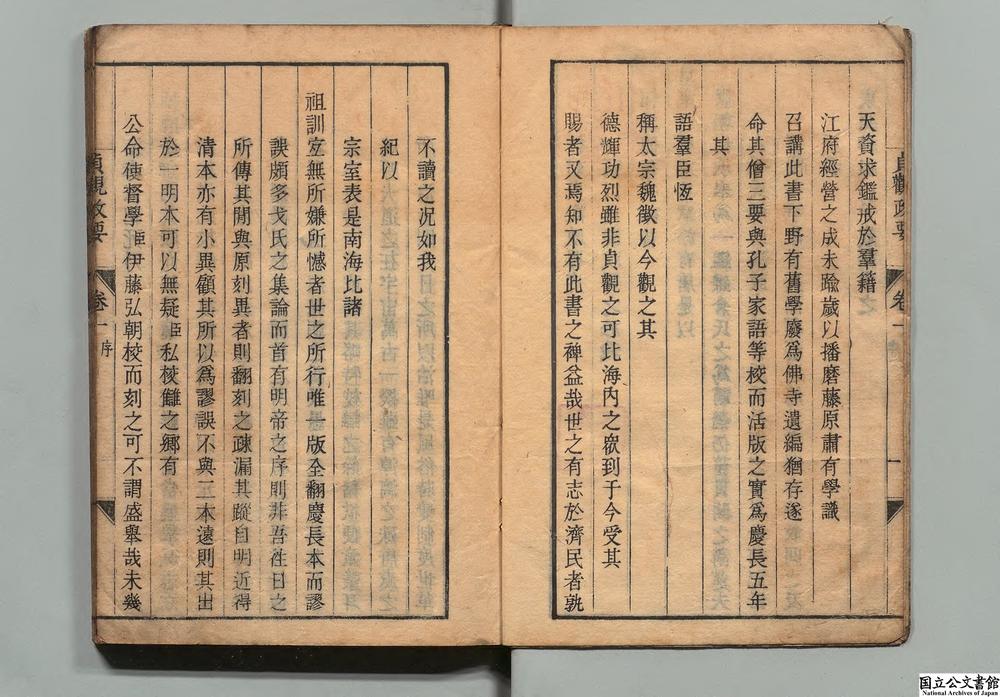 天資求鑑戒於羣籍
江府經營之成未踰歲以播磨藤原肅有學識
召講此書下野有舊學廢爲佛寺遺編猶存遂
命其僧三要與孔子家語等校而活版之實爲慶長五年
其
語羣臣恆
稱太宗魏徵以今觀之其
德輝功烈雖非貞觀之可比海内之欲到于今受其
賜者又焉知不有此書之裨益哉世之有志於濟民者孰
貞觀政要
卷一
一
不讀之况如我
紀以
宗室表是南海比諸
祖訓宜無所嫌所憾者世之所行唯一版全翻慶長本而謬
誤頗多戈氏之集論而首有明帝之序則非吾往日之
所傳其間與原刻異者則翻刻之疎漏其蹤自明近得
清本亦有小異顧其所以爲謬誤不與二本遠則其出
於一明本可以無疑臣私校讎之鄕有
公命使督學臣伊藤弘朝校而刻之可不謂盛舉哉未幾
貞觀政要
卷一
序
国立公文書館
National Archives of Japan